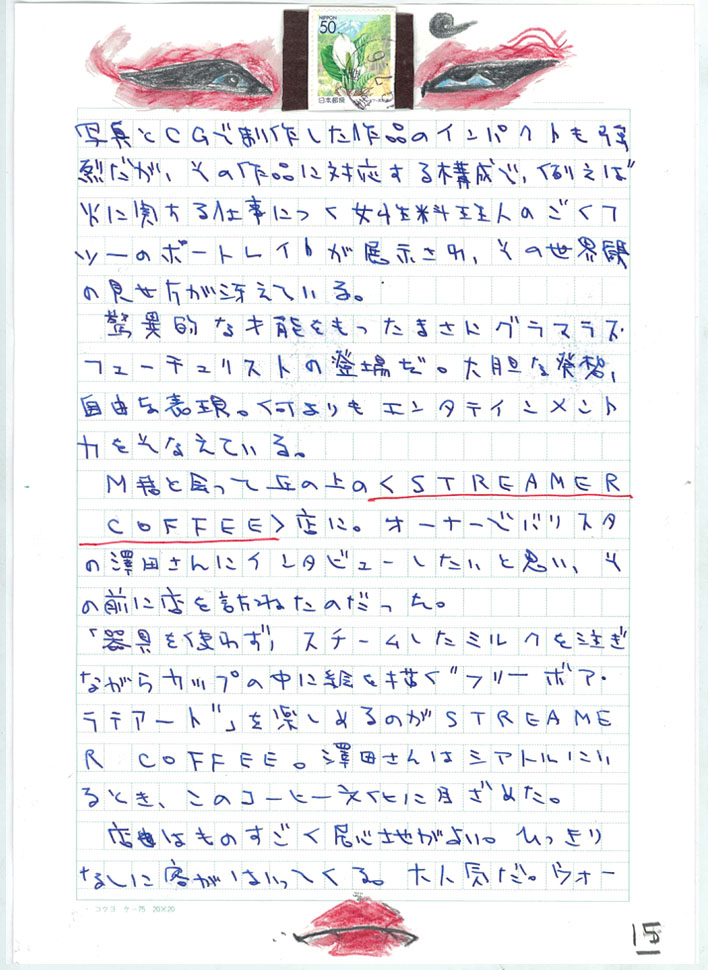 NIPPON
50
日本郵便
写真とCGで制作した作品のインパクトも強
烈だが、その作品に対応する構成で、例えば
火に関する仕事につく女性料理人のごくフ
ツーのポートレイトが展示され、その世界観
の見せ方が冴えている。
驚異的な才能をもったまさにグラマラズ・
フューチュリストの登場だ。大胆な発想、
自由な表現。何よりもエンタテインメント
力をそなえている。
M君と会って丘の上の〈STREAMER
COFFEE〉店に。オーナーでバリスタ
の澤田さんにインタビューしたいと思い、そ
の前に店を訪ねたのだった。
「器具を使わず、スチームしたミルクを注ぎ
ながらカップの中に絵を描く“フリーポア・
ラテアート”」を楽しめるのがSTREAME
R COFFEE。澤田さんはシアトルにい
るとき、このコーヒー文化に目ざめた。
店はものすごく居心地がよい。ひっきり
なしに客がはいってくる。大人気だ。ウォー
コクヨ ケー75 20×20
15